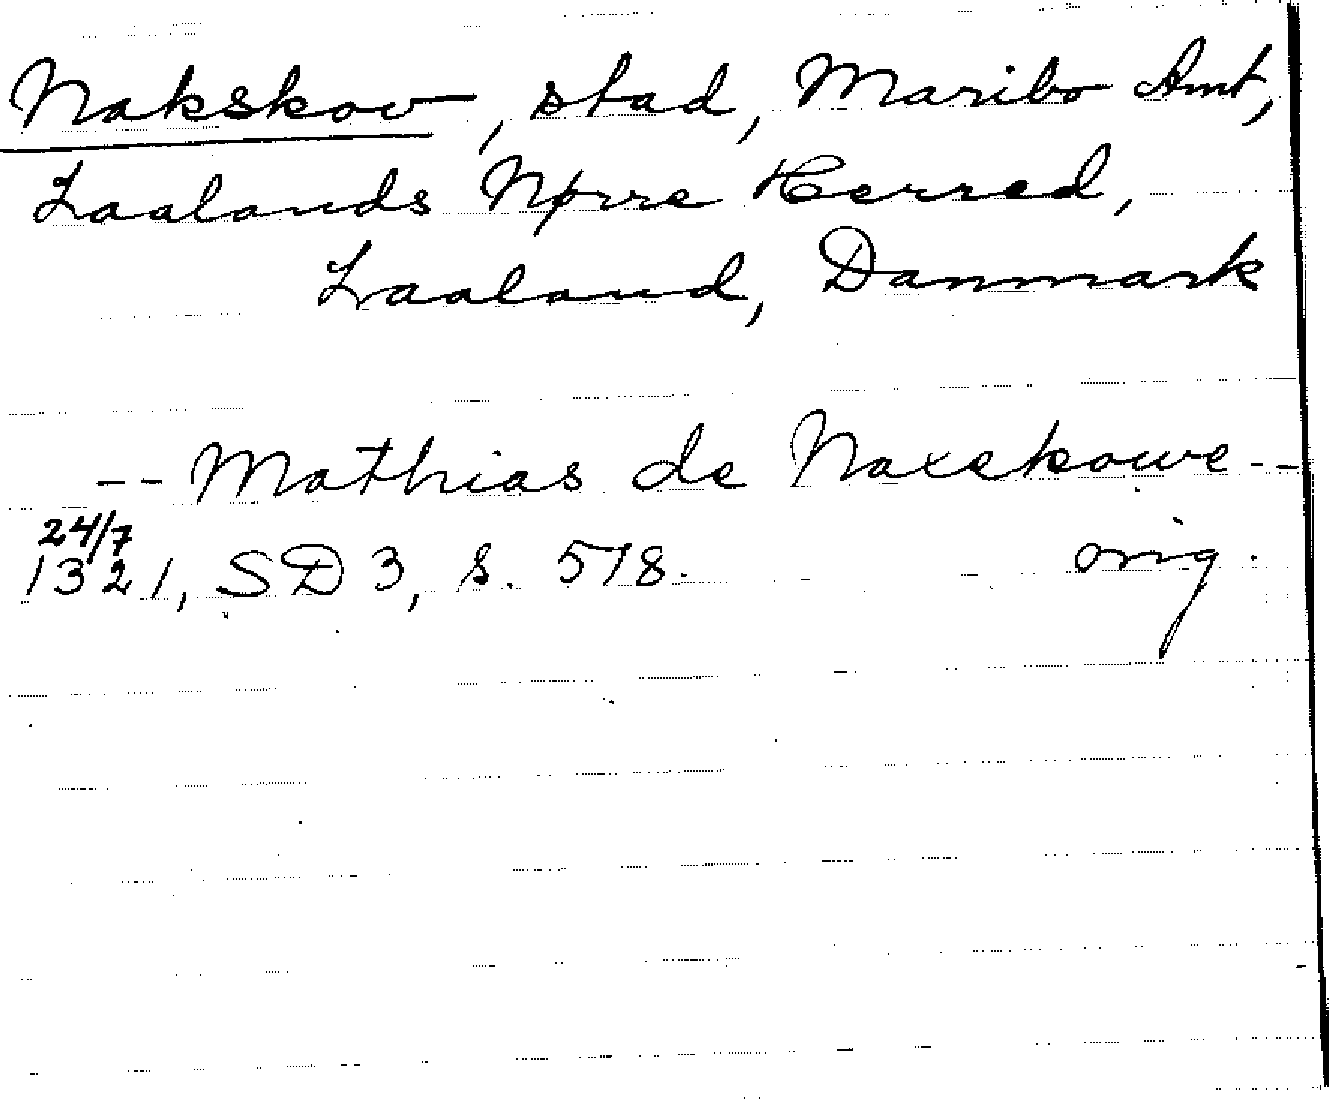 Nakskov, stad, Maribo Amt,
Laalands Nørre Herred,
Laaland, Danmark
-- Mathias de Naxekowe --
24/7
1321, SD 3, s. 578. orig.